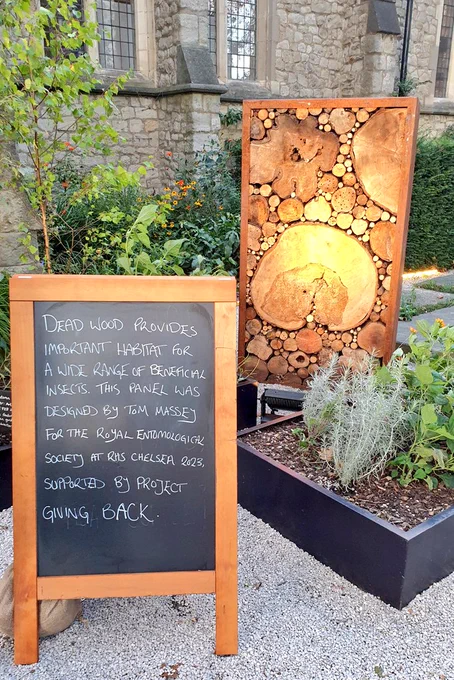 DEAD WOOD PROVIDES
IMPORTANT HABITAT FOR
A WIDE RANGE OF BENEFICIAL
INSECTS. THIS PANEL WAS
DESIGNED BY TOM MASSEY
FOR THE ROYAL ENTOMOLOGICAL
SOCIETY AT RHS CHELSEA 2023,
SUPPORTED BY PROJECT
GIVING BACK.